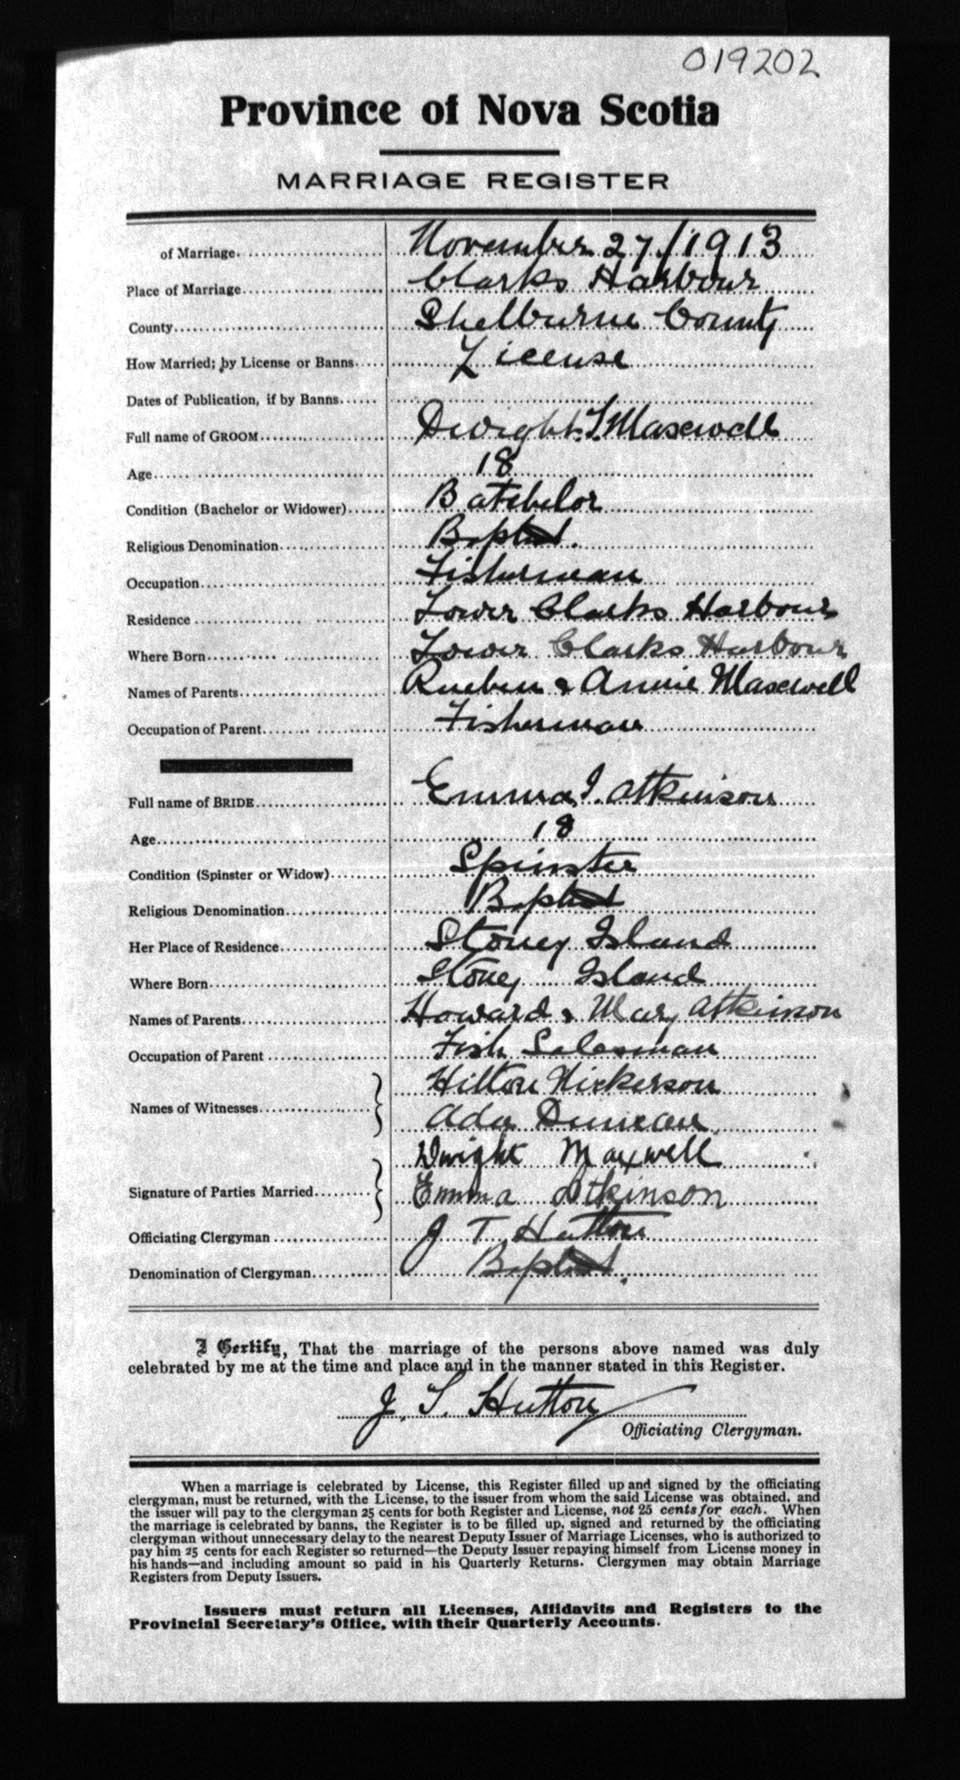 019202
Province of Nova Scotia
MARRIAGE REGISTER
of Marriage. November 27/1913
Place of Marriage Clarks Harbour
County Shelburne County
How Married; by License or Banns License
Dates of Publication, if by Banns
Full name of GROOM Dwight. S. Maxwell
Age 18
Condition (Bachelor or Widower) Batchelor
Religious Denomination Baptist.
Occupation Fisherman
Residence Lower Clarks Harbour
Where Born Lower Clarks Harbour
Names of Parents Rueben & Annie Maxwell
Occupation of Parent Fisherman
Full name of BRIDE Emma I. Atkinson
Age 18
Condition (Spinster or Widow) Spinster
Religious Denomination Baptist
Her Place of Residence Stoney Island
Where Born Stoney Island
Names of Parents Howard & Mary Atkinson
Occupation of Parent Fish Salesman
Hilton Nickerson
Names of Witnesses
Ada Duncan
Dwight Maxwell
Signature of Parties Married Emma Atkinson
Officiating Clergyman J T. Hutton
Denomination of Clergyman Baptist.
I Certify, That the marriage of the persons above named was duly
celebrated by me at the time and place and in the manner stated in this Register.
J. T. Hutton
Officiating Clergyman.
When a marriage is celebrated by License, this Register filled up and signed by the officiating
clergyman, must be returned, with the License, to the issuer from whom the said License was obtained, and
the issuer will pay to the clergyman 25 cents for both Register and License, not 25 cents for each. When
the marriage is celebrated by banns, the Register is to be filled up, signed and returned by the officiating
clergyman without unnecessary delay to the nearest Deputy Issuer of Marriage Licenses, who is authorized to
pay him 25 cents for each Register so returned—the Deputy Issuer repaying himself from License money in
his hands—and including amount so paid in his Quarterly Returns. Clergymen may obtain Marriage
Registers from Deputy Issuers.
Issuers must return all Licenses, Affidavits and Registers to the
Provincial Secretary's Office, with their Quarterly Accounts.